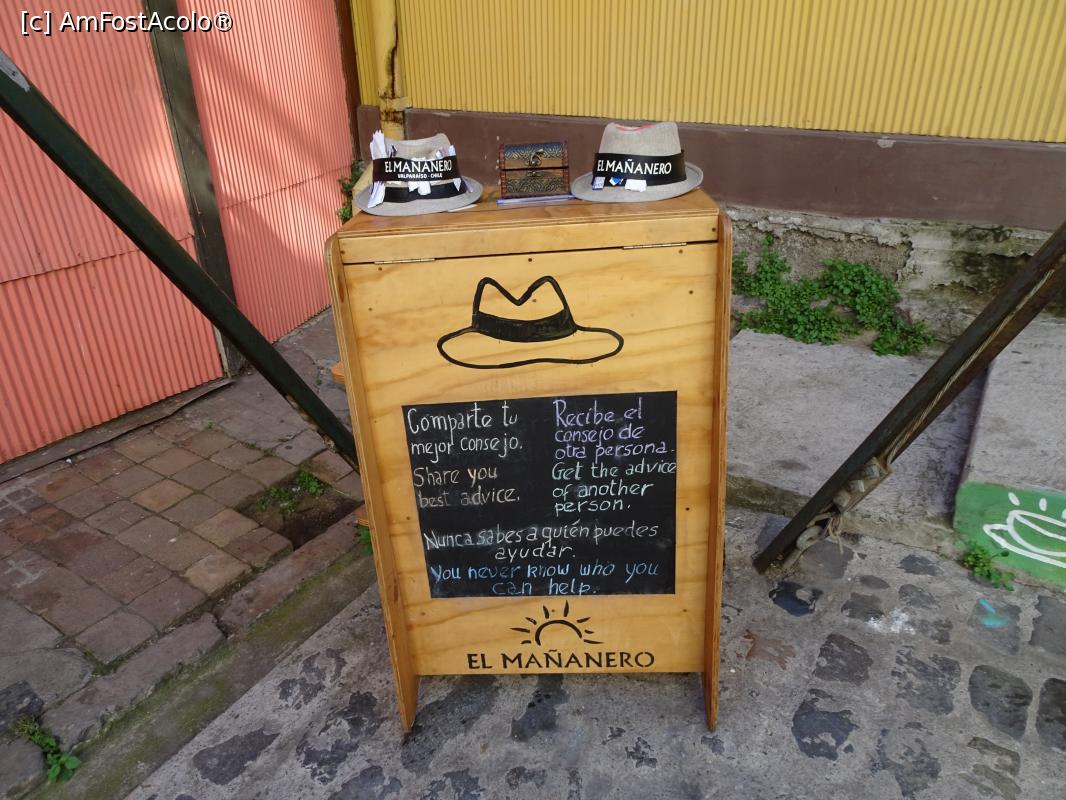 [c] AmFostAcolo®
EL MAÑANERO
VALPARAÍSO - CHILE
EL MAÑANERO
Comparte tu
mejor consejo.
Share you
best advice.
Recibe el
consejo de
otra persona.
Get the advice
of another
person.
Nunca sabes a quién puedes
ayudar.
You never know who you
can help.
EL MAÑANERO